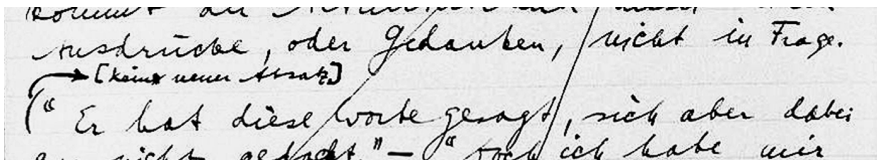 kommt die
Ausdrücke, oder Gedanken, nicht in Frage.
[kein neuer Absatz]
“Er hat diese Worte gesagt, sich aber dabei
nicht gedacht.” – “Doch ich habe mir